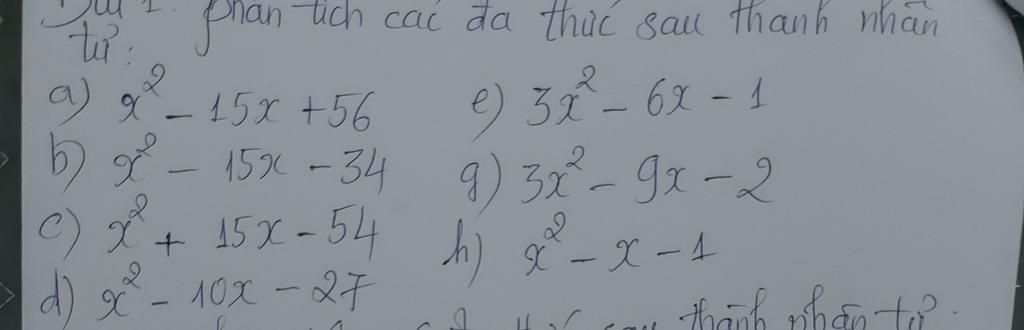 Bài 1. phân tích các đa thức sau thành nhân
tử:
a) x² - 15x + 56
b) x² - 15x - 34
c) x² + 15x - 54
d) x² - 10x - 27
e) 3x² - 6x - 1
g) 3x² - 9x - 2
h) x² - x - 1
thành nhân tử.